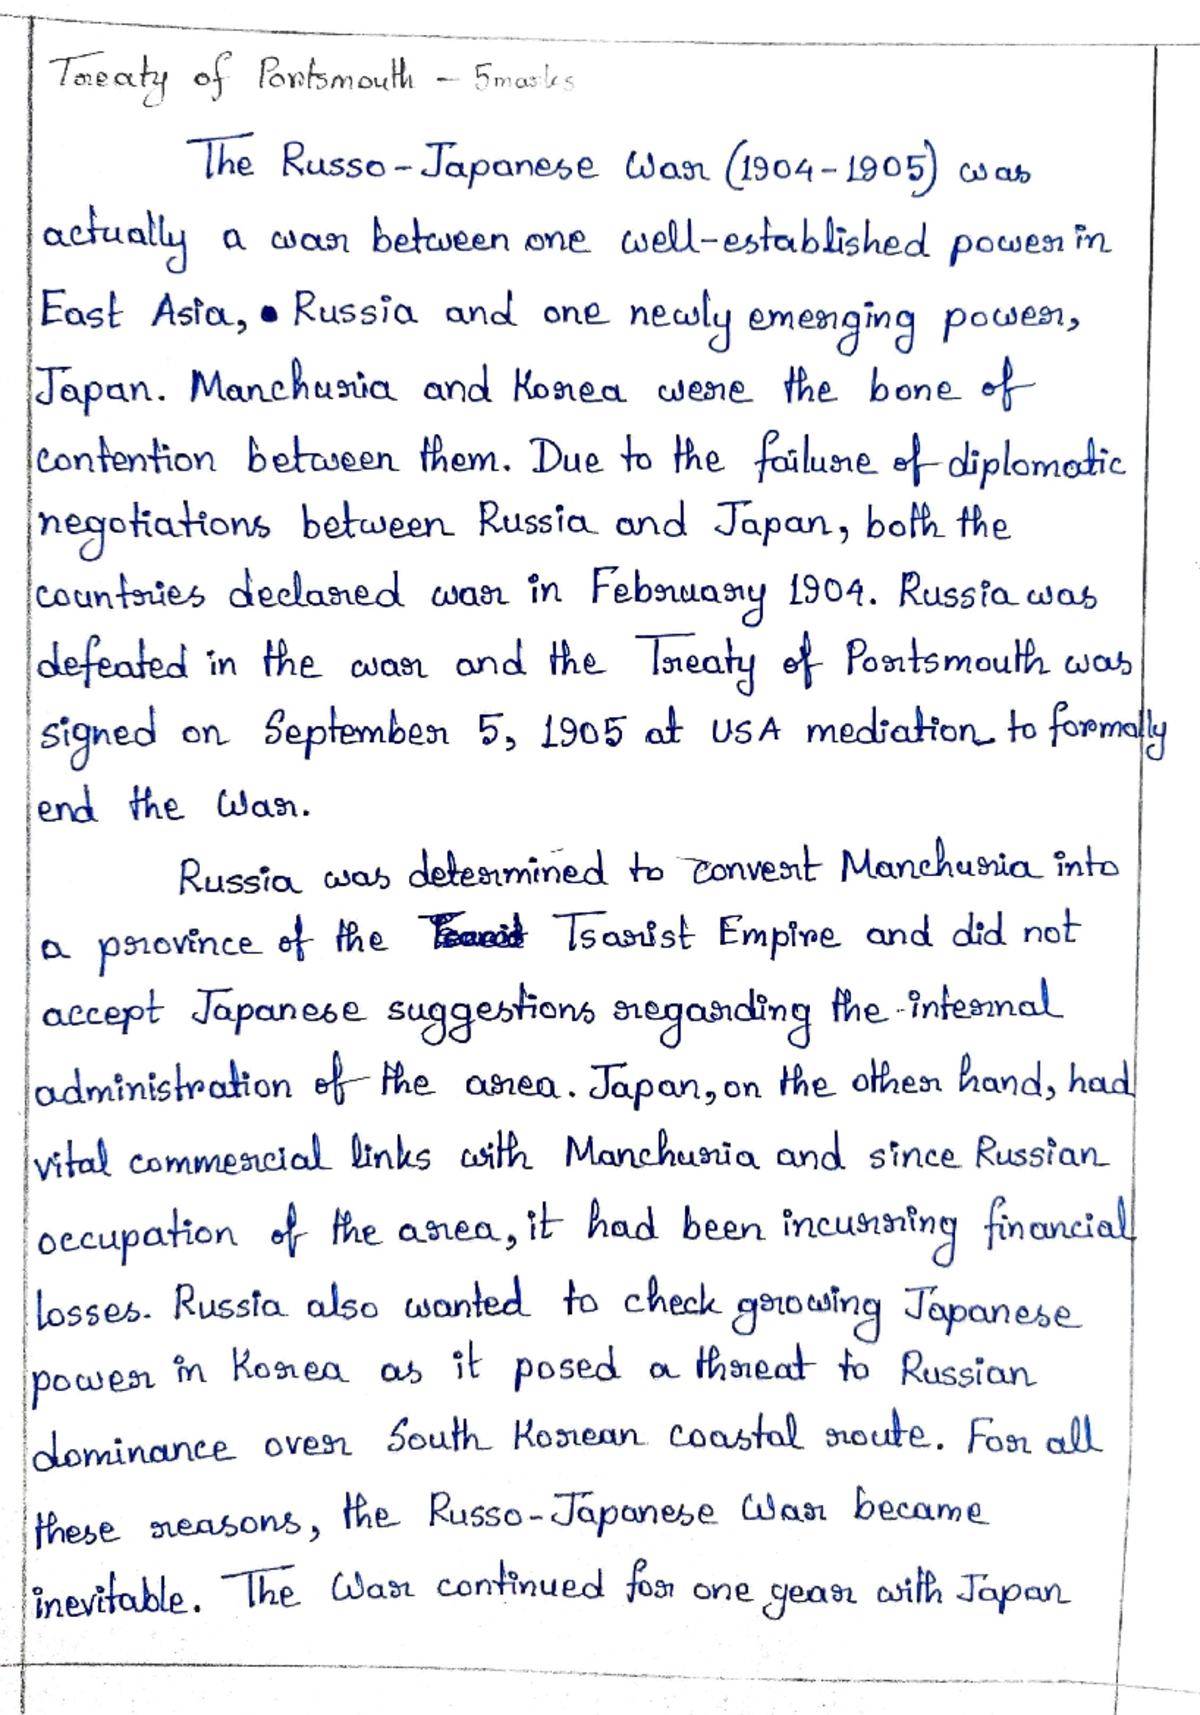 Treaty of Portsmouth - 5 marks
The Russo-Japanese War (1904-1905) was
actually a war between one well-established power in
East Asia, Russia and one newly emerging power,
Japan. Manchuria and Korea were the bone of
contention between them. Due to the failure of diplomatic
negotiations between Russia and Japan, both the
countries declared war in February 1904. Russia was
defeated in the war and the Treaty of Portsmouth was
signed on September 5, 1905 at USA mediation to formally
end the War.
Russia was determined to convert Manchuria into
a province of the Tsarist Empire and did not
accept Japanese suggestions regarding the internal
administration of the area. Japan, on the other hand, had
vital commercial links with Manchuria and since Russian
occupation of the area, it had been incurring financial
losses. Russia also wanted to check growing Japanese
power in Korea as it posed a threat to Russian
dominance over South Korean coastal route. For all
these reasons, the Russo-Japanese War became
inevitable. The War continued for one year with Japan